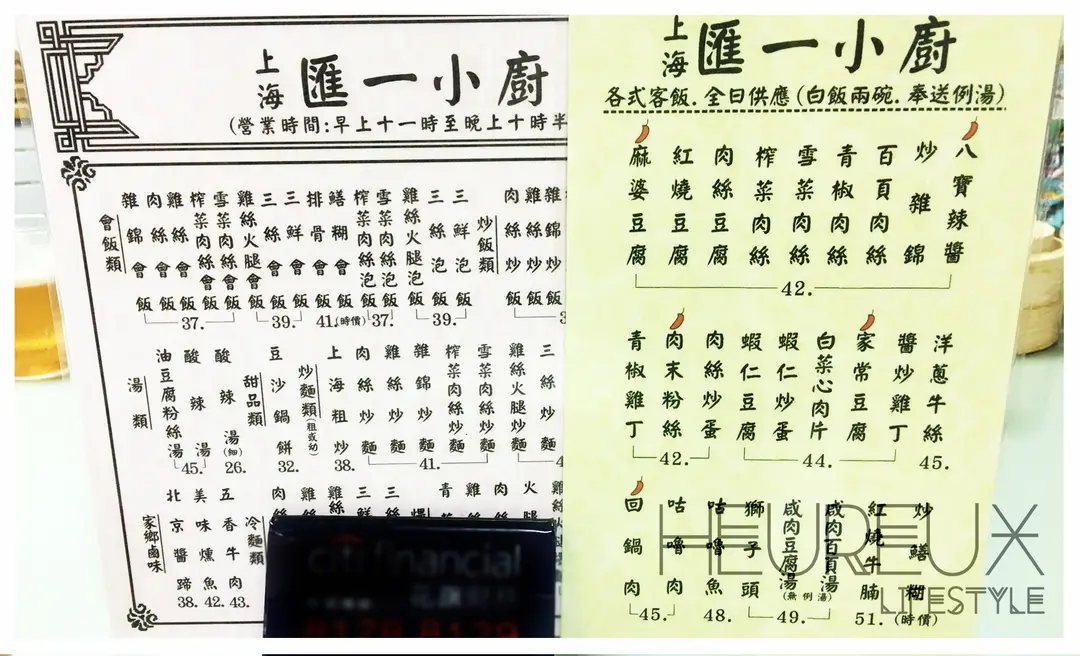 上海 匯一小廚
(營業時間:早上十一時至晚上十時半
會飯類
雜錦會飯
肉絲會飯
雞絲會飯
榨菜肉絲會飯
雪菜肉絲會飯
37.
雞絲火腿會飯
三絲會飯
三鮮會飯
39.
排骨會飯
41.
鱔糊會飯
(時價)
榨菜肉絲泡飯
雪菜肉絲泡飯
37.
雞絲火腿泡飯
三絲泡飯
三鮮泡飯
39.
炒飯類
肉絲炒飯
雞絲炒飯
雜錦炒飯
湯類
油豆腐粉絲湯
酸辣湯
45.
酸辣湯(細)
26.
甜品類
豆沙鍋餅
32.
炒麵類(粗或幼)
上海粗炒
38.
肉絲炒麵
雞絲炒麵
雜錦炒麵
榨菜肉絲炒麵
雪菜肉絲炒麵
41.
雞絲火腿炒麵
三絲炒麵
家鄉鹵味
北京醬蹄
38.
美味燻魚
42.
五香牛肉
43.
冷麵類
肉絲
雞絲
雞絲
三鮮
三絲
青
雞絲
肉絲
火腿
雞絲
citi financial
上海 匯一小廚
各式客飯.全日供應(白飯兩碗.奉送例湯)
麻婆豆腐
紅燒豆腐
肉絲豆腐
榨菜肉絲
雪菜肉絲
青椒肉絲
百頁肉絲
炒雜錦
八寶辣醬
42.
青椒雞丁
肉末粉絲
肉絲炒蛋
42.
蝦仁豆腐
蝦仁炒蛋
白菜心肉片
家常豆腐
醬炒雞丁
44.
洋蔥牛絲
45.
回鍋肉
咕嚕肉
45.
咕嚕魚
48.
獅子頭
咸肉豆腐湯
咸肉百頁湯
(無例湯)
49.
紅燒牛腩
51.
炒鱔糊
(時價)
HEUREUX
LIFESTYLE